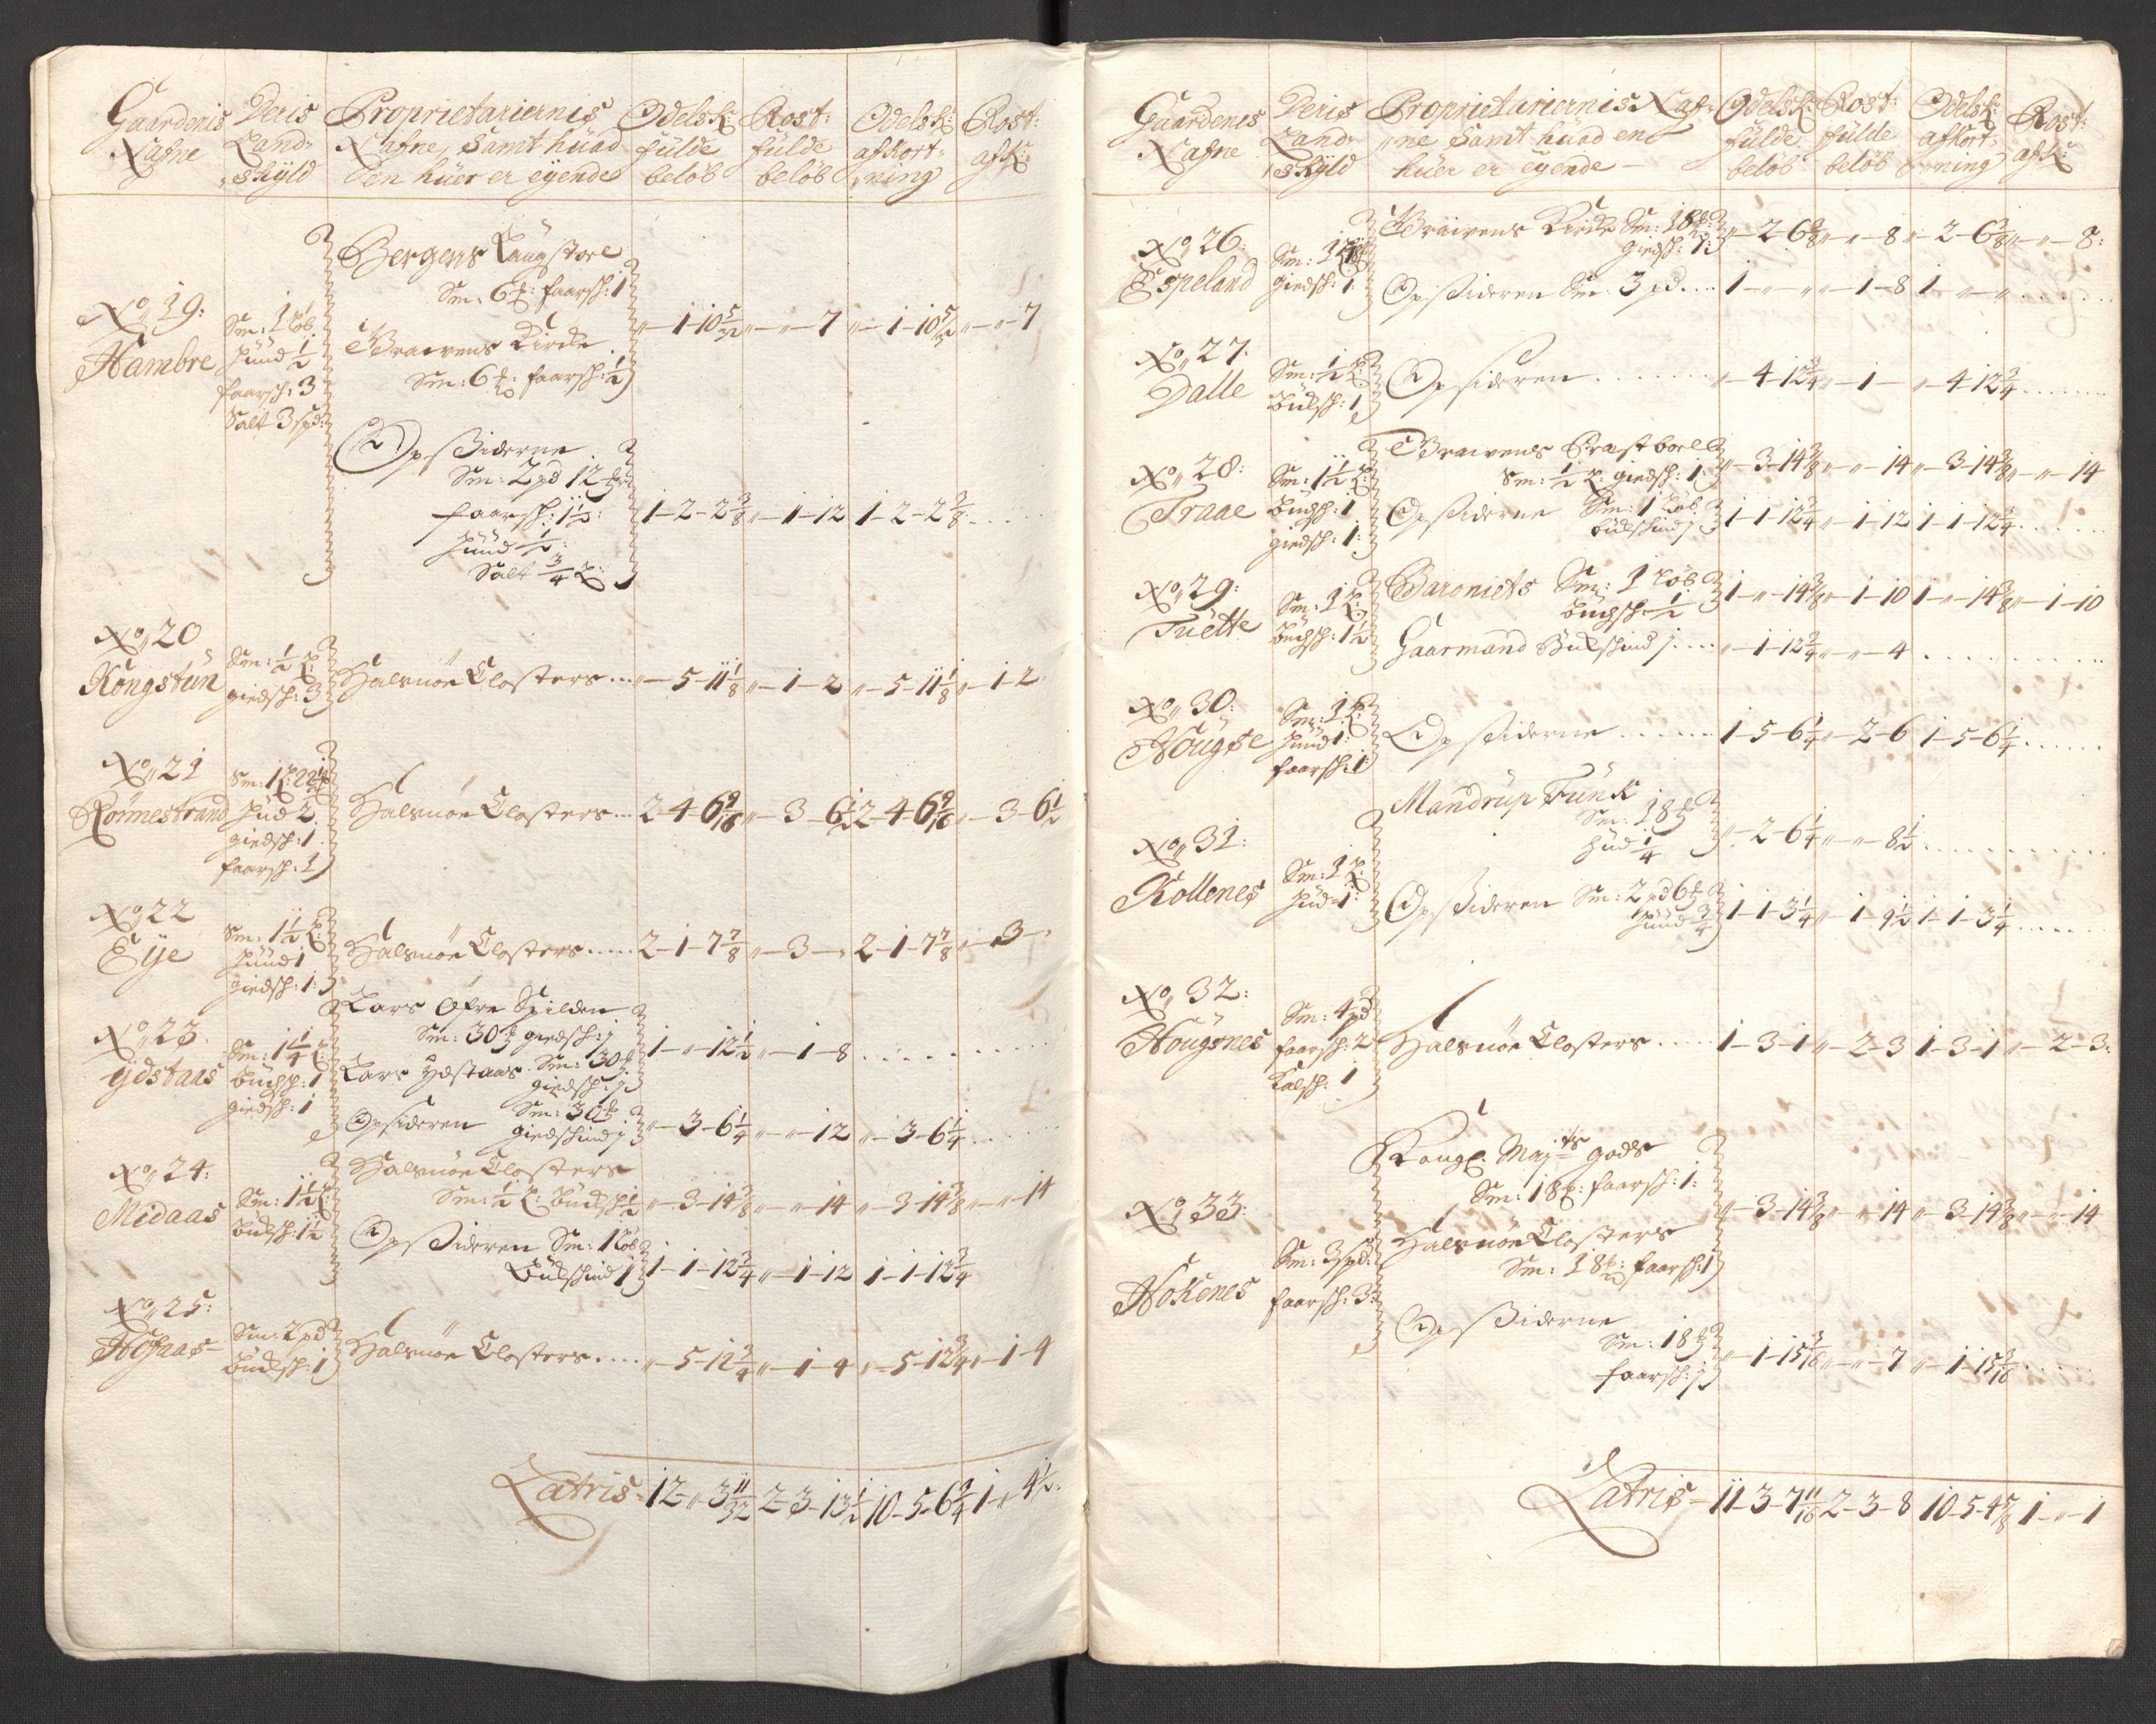 Gaardenis Nafne
Deris Land: skyld
Proprietariernis Nafne, samt huad en huer er eyende
Odelsk: fulde beløb
Rost: fulde beløb
Odelsk: afkort: ning
Rost: afk:
No 19: Hambre
Sm: 1 løb
huud 1/2
faarsk: 3
Salt 3 spd:
Bergens Laugstoel
Sm: 6 faarsk: 1
Graevens Kircke
Sm: 6 faarsk: 1/2
" - 1 - 10 5/32 " - " - 7 " - 1 - 10 5/32 " - " - 7
Opsiderne
Sm: 2 pd 12
faarsk: 1 1/2:
huud 1/2:
Salt 3/4
1 - 2 - 2 3/8 " - 1 - 12 1 - 2 - 2 3/8
No 20 Kongstun
Sm: 1/2
giedsk: 3
Halsnøe Closters " - 5 - 11 1/8 " - 1 - 2 " - 5 - 11 1/8 " - 1 - 2
No 21 Rønnestrand
hud 2
giedsk: 1
faarsk: 1
Halsnøe Closters 2 - 4 - 6 9/16 " - 3 - 6 1/2 2 - 4 - 6 9/16 " - 3 - 6 1/2
No 22 Eye
Sm: 1 1/2
huud 1
giedsk: 1:
Halsnøe Closters 2 - 1 - 7 7/8 " - 3 - " 2 - 1 - 7 7/8 " - 3 - "
No 23. ydstaas
Sm: 1 1/4
buchsk: 1
giedsk: 1
Lars Øfre Spilden
Sm: 30 giedsk:
Lars ydstaas Sm: 30
giedsk:
1 - " - 12 1/2 " - 1 - 8
Opsideren Sm: 30
giedskind
" - 3 - 6 1/4 " - " - 12 " - 3 - 6 1/4
No 24: Midaas
Sm: 1 1/2
buksk: 1 1/2
Halsnøe Closters
Sm: 1/2 buksk 1/2 " - 3 - 14 3/8 " - " - 14 " - 3 - 14 3/8 " - " - 14
Opsideren Sm: 1 løb
Bukskind 1 1 - 1 - 12 3/4 " - 1 - 12 1 - 1 - 12 3/4
No 25:
Sm: 2 pd
buksk: 1
Halsnøe Closters " - 5 - 12 3/4 " - 1 - 4 " - 5 - 12 3/4 " - 1 - 4
Latris 12 - " - 3 11/32 2 - 3 - 13 1/2 10 - 5 - 6 3/4 1 - " - 4 1/2
Gaardenes Nafne
Deris Land: skyld
Proprietariernis Naf: ne samt huad en huer er eyende
Odelsk: fulde beløb
Rost: fulde beløb
Odelsk: afkort: ning
Rost: afk:
No 26: Espeland
giedsk: 1:
Graevens Kircke Sm: 18
giedsk: 1:
" - 2 - 6 3/8 " - " - 8 " - 2 - 6 3/8 " - " - 8:
Opsideren Sm: 3 pd 1 - " - " " - 1 - 8 1 - " - "
No 27. Dalle
Sm: 1/2
buksk: 1
Opsideren " - 4 - 12 3/4 " - 1 - " - 4 - 12 3/4
No 28: Traae
Sm: 1 1/2
buchsk: 1
giedsk: 1:
Graevens Præstboel
Sm: 1/2 giedsk: 1: " - 3 - 14 3/8 " - " - 14 " - 3 - 14 3/8 " - " - 14
Opsiderne Sm: 1 løb
bukskind
1 - 1 - 12 3/4 " - 1 - 12 1 - 1 - 12 3/4
No 29: Tuette
Sm: 1
buchsk: 1 1/2
Baroniets Sm: 1 løb
buchsk 1/2
1 - " - 14 3/8 " - 1 - 10 1 - " - 14 3/8 " - 1 - 10
Gaarmand Bukskind " - 1 - 12 3/4 " - " - 4
No 30: Hougse
Sm: 1
huud 1:
faarsk: 1
Opsiderne 1 - 5 - 6 1/4 " - 2 - 6 1 - 5 - 6 1/4
No 31: Kollenes
Sm: 1
hud 1:
Mandrup Funk
Sm: 18
hud 1/4
" - 2 - 6 1/4 " - " - 8 1/2
Opsideren Sm: 2 pd 6
huud 3/4
1 - 1 - 3 1/4 " - 1 - 9 1/2 1 - 1 - 3 1/4
No 32: Hougsnes
Sm: 4 pd
faarsk: 2
Kalfsk: 1
Halsnøe Closters 1 - 3 - 1 " - 2 - 3 1 - 3 - 1 " - 2 - 3:
No 33: Hokenes
Sm: 3 spd:
faarsk: 3:
Kongl: Mayts gods
Sm: 18: faarsk: 1:
Halsnøe Closters
Sm: 18: faarsk: 1
" - 3 - 14 3/8 " - " - 14 " - 3 - 14 3/8 " - " - 14
Opsiderne
Sm: 18
faarsk:
" - 1 - 15 3/16 " - " - 7 " - 1 - 15 3/16
Latris 11 - 3 - 7 11/16 2 - 3 - 8 10 - 5 - 4 5/8 1 - " - 1